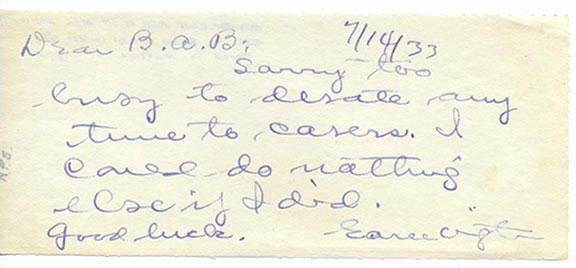 7/14/33
Dear B.A.B;
Sorry too
busy to desate any
time to casers. I
could do nothing
else if I did.
Good luck.
RPS.